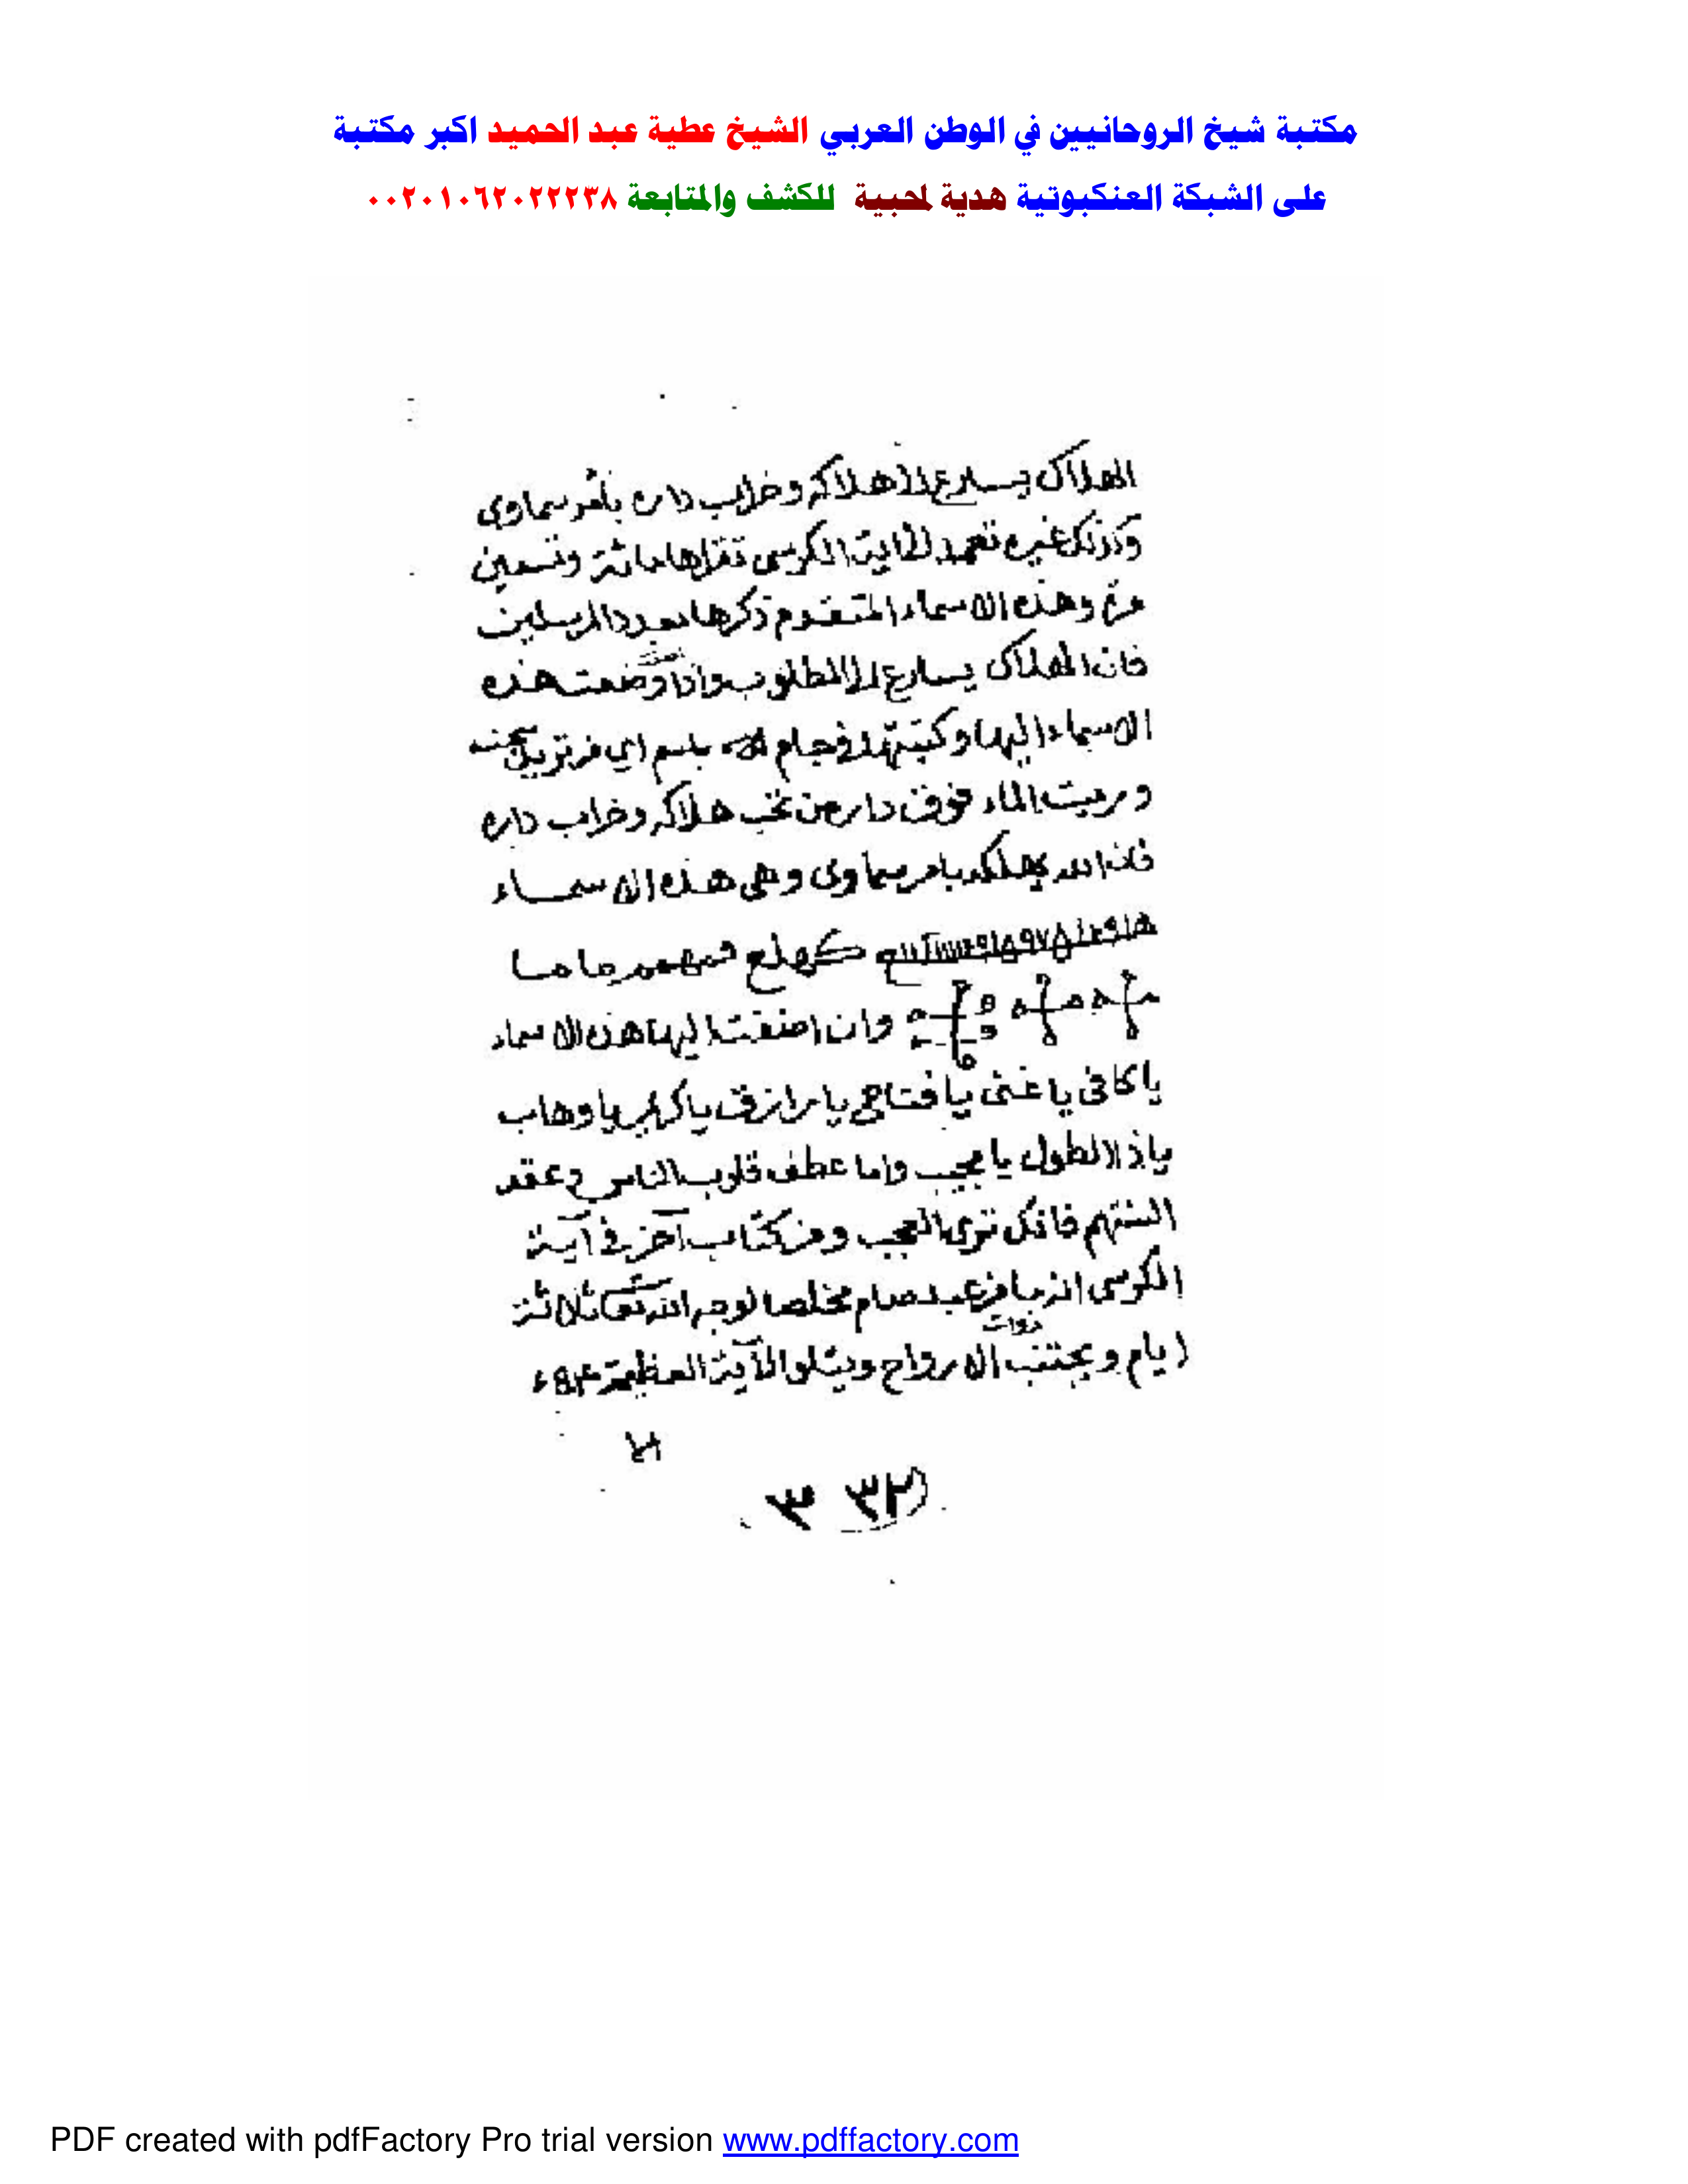 مكتبة شيخ الروحانيين في الوطن العربي الشيخ عطية عبد الحميد اكبر مكتبة
على الشبكة العنكبوتية هدية لمحبية للكشف والمتابعة ٠٠٢٠١٠٦٢٠٢٢٢٣٨
الهلاك يسارع الا هلاكه وخراب داره بامر سماوى
وكذلك غيره تعمد الا اية الكرسى تقراها مائة وتسعين
مرة وهذه الاسماء المتقدم ذكرها بعدد المرسلين
فان الهلاك يسارع الا المطلوب واذا وضعت هذه
الاسماء اليها وكتبتها فى جام بلسم اي من تريد
ورميت الماء فوق دار من تحب هلاكه وخراب داره
فان الله يهلكه بامر سماوى وهى هذه الاسماء
كهلع
وان اضفت اليها هذه الاسماء
يا كافى يا غنى يا فتاح يا رازق يا كريم يا وهاب
ياذا الطول يا مجيب واما عطف قلوب الناس وعقد
السنتهم فانك ترى العجب ومن كتاب آخر فى آية
الكرسى انه ما من عبد صام مخلصا لوجه الله تعالى ثلاثة
ايام ويجتنب ذوات الارواح ويتلوا الآية العظيمة
٣٢ ٣
PDF created with pdfFactory Pro trial version www.pdffactory.com